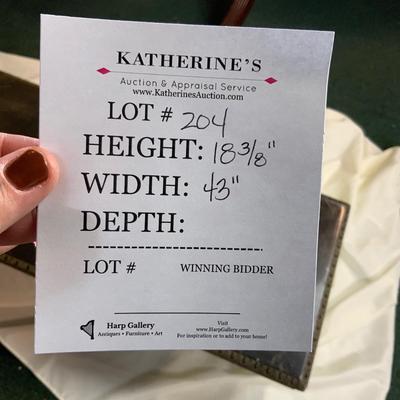 KATHERINE'S
Auction & Appraisal Service
www.KatherinesAuction.com
LOT # 204
HEIGHT: 18 3/8"
WIDTH: 43"
DEPTH:
LOT # WINNING BIDDER
Harp Gallery
Antiques • Furniture • Art
Visit
www.HarpGallery.com
For inspiration or to add to your home!